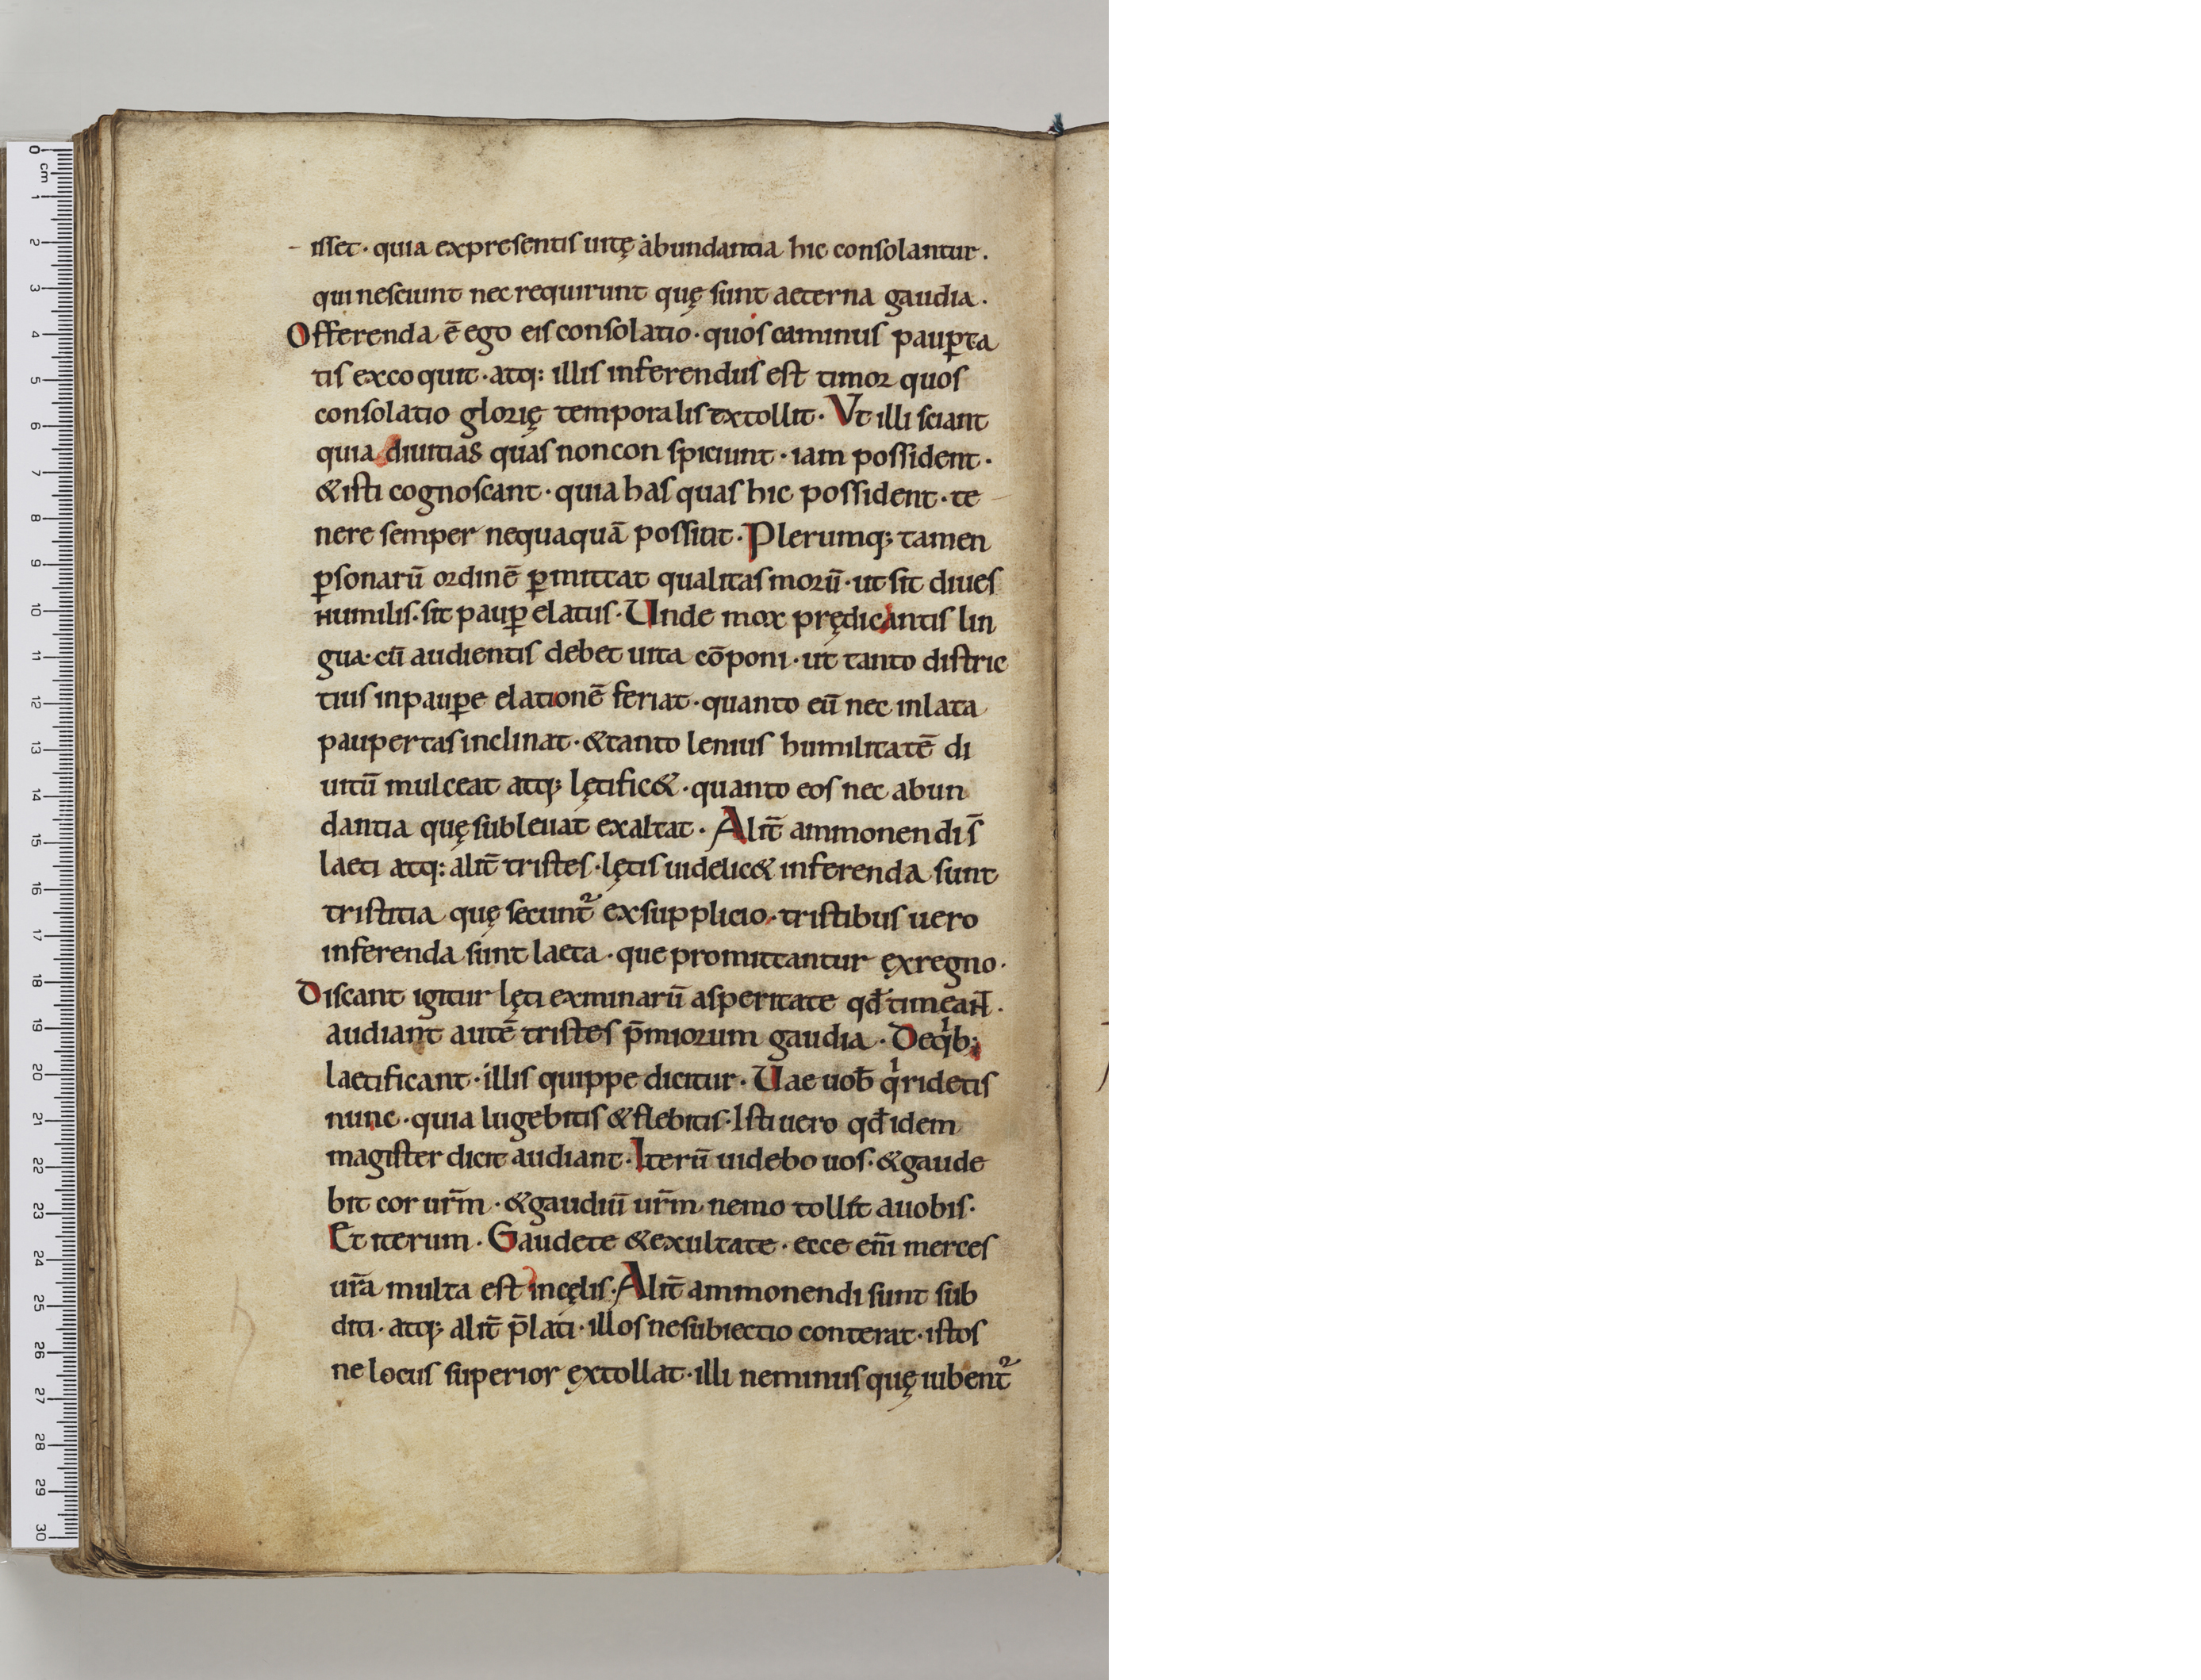 isset · quia expresentis uitę abundantia hic consolantur.
qui nesciunt nec requirunt quę sunt aeterna gaudia.
Offerenda ē ego eis consolatio · quos caminus paup̱ta
tis excoquit · atq: illis inferendus est timor quos
consolatio glorię temporalis extollit · Vt illi sciant
quia diuitias quas non conspiciunt · iam possident ·
& isti cognoscant · quia has quas hic possident · te
nere semper nequaquā possiut · Plerumq; tamen
p̱sonarū ordinē p̱mittat qualitas morū · ut sit diues
humilis · sit paup̱ elatus · Unde mox prędicantis lin
gua · cū audientis debet uita cōponi · ut tanto distric
tius inpaup̱e elationē feriat · quanto eū nec inlata
paupertas inclinat · & tanto lenius humilitatē di
uitū mulceat atq; lętific& · quanto eos nec abun
dantia quę subleuat exaltat · Alit̄ ammonendi s̄
laeti atq: alit̄ tristes · lętis uidelic& inferenda sunt
tristitia quę secunt̃ exsupplicio · tristibus uero
inferenda sunt laeta · que promittantur ęxregno ·
Discant igitur lęti exminarū asperitate qđ timeant̄ ·
audiant autē tristes p̄miorum gaudia · Deqⁱb;
laetificant · illis quippe dicitur · Uae uob̄ qⁱ ridetis
nunc · quia lugebitis & flebitis · Isti uero qđ idem
magister dicit audiant · Iterū uidebo uos · & gaude
bit cor ur̄m · & gaudiū ur̄m nemo tollit auobis ·
Et iterum · Gaudete & exultate · ecce eni̅ merces
ur̄a multa est incęlis · Alit̄ ammonendi sunt sub
diti · atq; alit̄ p̄lati · illos ne subiectio conterat · istos
ne locus superior ęxtollat · illi neminus quę iubent̃
0 cm 1 2 3 4 5 6 7 8 9 10 11 12 13 14 15 16 17 18 19 20 21 22 23 24 25 26 27 28 29 30